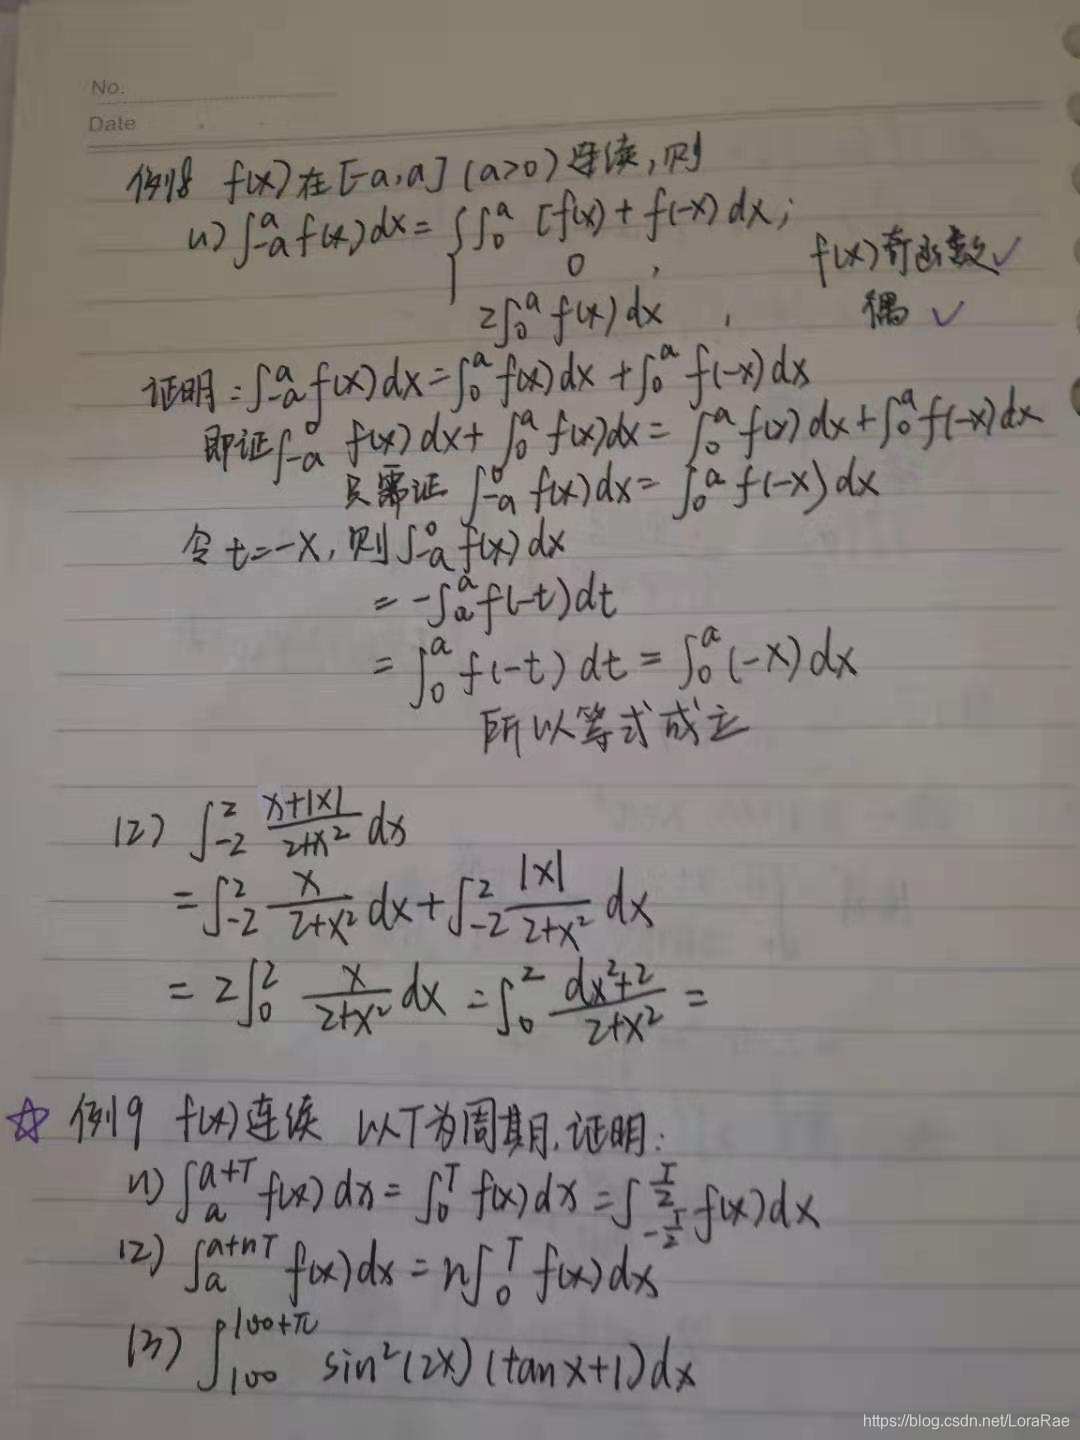 No.
Date
例8 f(x)在[-a,a](a>0)连续,则
(1) ∫_{-a}^{a} f(x)dx = { ∫_0^a [f(x)+f(-x)dx;
0 , f(x)奇函数✓
2∫_0^a f(x)dx , 偶 ✓
证明:∫_{-a}^{a} f(x)dx=∫_0^a f(x)dx+∫_0^a f(-x)dx
即证∫_{-a}^{0} f(x)dx+∫_0^a f(x)dx=∫_0^a f(x)dx+∫_0^a f(-x)dx
只需证 ∫_{-a}^{0} f(x)dx=∫_0^a f(-x)dx
令t=-x,则∫_{-a}^{0} f(x)dx
=-∫_a^a f(-t)dt
=∫_0^a f(-t)dt=∫_0^a (-x)dx
所以等式成立
(2) ∫_{-2}^{2} \frac{x+|x|}{2+x^2} dx
=∫_{-2}^{2} \frac{x}{2+x^2} dx+∫_{-2}^{2} \frac{|x|}{2+x^2} dx
=2∫_0^2 \frac{x}{2+x^2} dx=∫_0^2 \frac{dx^2+2}{2+x^2}=
☆ 例9 f(x)连续 以T为周期,证明:
(1) ∫_a^{a+T} f(x)dx=∫_0^T f(x)dx=∫_{-\frac{T}{2}}^{\frac{T}{2}} f(x)dx
(2) ∫_a^{a+nT} f(x)dx=n∫_0^T f(x)dx
(3) ∫_{100}^{100+π} sin^2(2x)(tanx+1)dx
https://blog.csdn.net/LoraRae